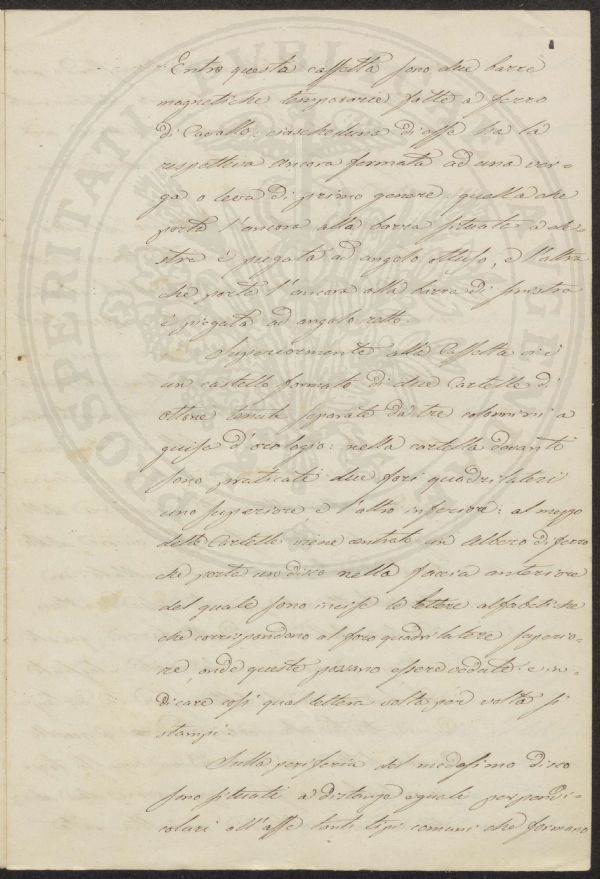 Entro questa cassetta sono due barre
magnetiche temporarie fatte a ferro
di Cavallo: ciascheduna d'esse ha la
respettiva ancora fermata ad una ver-
ga o leva di primo genere: quella che
porta l'ancora alla barra situata a de-
stra è piegata ad angolo ottuso, e l'altra
che porta l'ancora alla barra di sinistra
è piegata ad angolo retto.
Superiormente alla Cassetta vi è
un castello formato di due Cartelle di
ottone tenute separate da tre colonnini a
guisa d'orologio: nella cartella davanti
sono praticati due fori quadrilateri
uno superiore e l'altro inferiore: al mezzo
delle Cartelle viene centrato un Albero di ferro
che porta un disco nella faccia anteriore
del quale sono incise le lettere alfabetiche
che corrispondono al foro quadrilatere superio-
re, onde queste possano essere vedute e in-
dicare così qual lettera volta per volta si
stampi.
Sulla periferia del medesimo disco
sono situati a distanze eguali perpendi-
colari all'asse tanti tipi comuni che formano
PROSPERITATI PUBLICAE